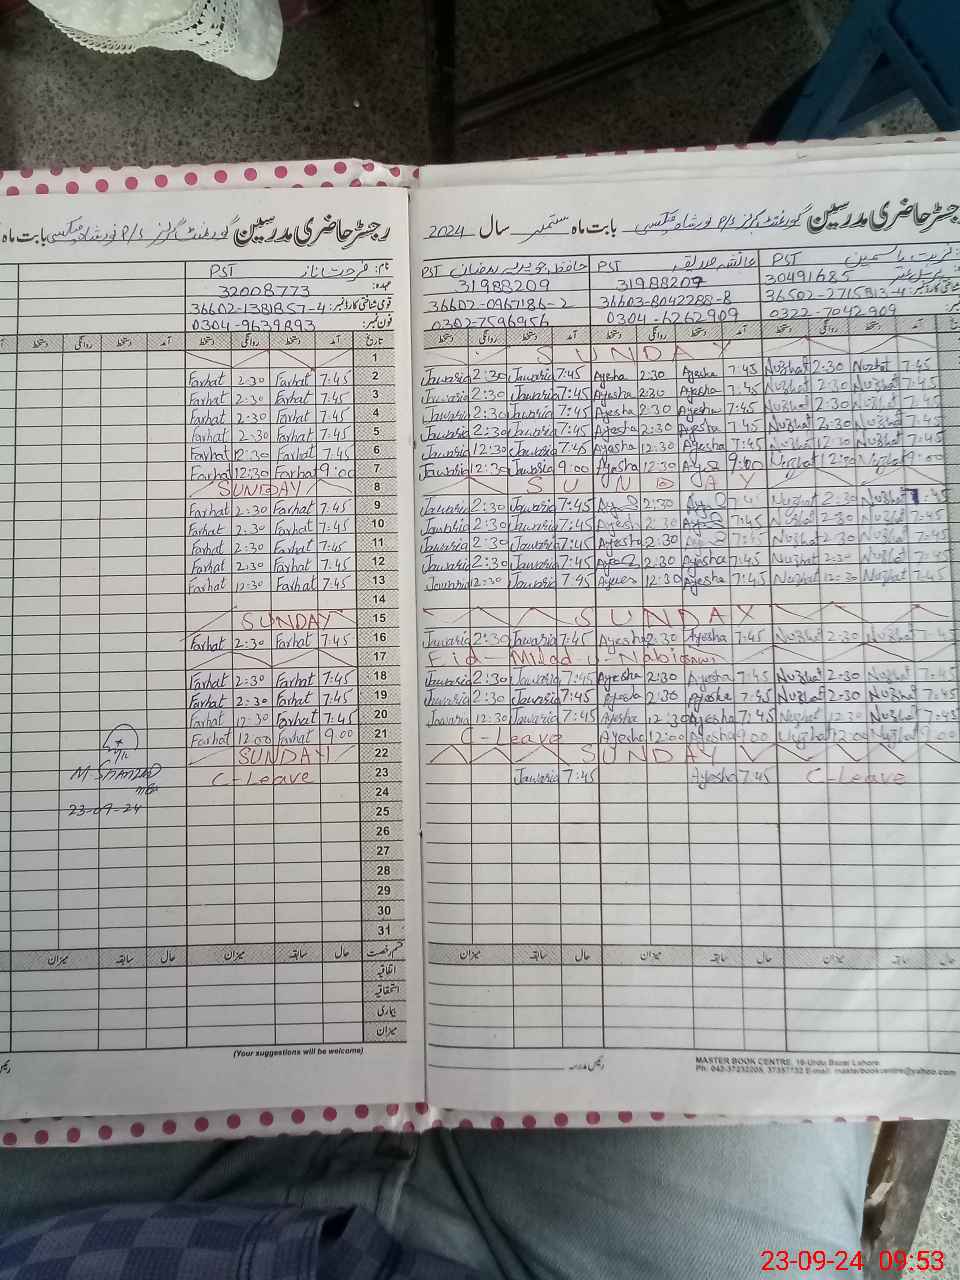 رجسٹر حاضری مدرسین گورنمنٹ گرلز P/S نور شاہ بابت ماہ ستمبر سال 2024
PST
30491685
36502-2715913-4
0322-7042909
عائشہ PST
31988209
36603-8042288-8
0304-6262909
حافظہ جویریہ رمضان PST
31988209
36602-0967186-2
0302-7596956
آمد دستخط روانگی دستخط آمد دستخط روانگی دستخط آمد دستخط روانگی دستخط
SUNDAY
Jawaria 2:30 Jawaria 7:45 Ayesha 2:30 Ayesha 7:45 Nuzhat 2:30 Nuzhat 7:45
Jawaria 2:30 Jawaria 7:45 Ayesha 2:30 Ayesha 7:45 Nuzhat 2:30 Nuzhat 7:45
Jawaria 2:30 Jawaria 7:45 Ayesha 2:30 Ayesha 7:45 Nuzhat 2:30 Nuzhat 7:45
Jawaria 2:30 Jawaria 7:45 Ayesha 2:30 Ayesha 7:45 Nuzhat 2:30 Nuzhat 7:45
Jawaria 12:30 Jawaria 7:45 Ayesha 12:30 Ayesha 7:45 Nuzhat 12:30 Nuzhat 7:45
Jawaria 12:30 Jawaria 9:00 Ayesha 12:30 9:00 Nuzhat 12:30 Nuzhat 9:00
SUNDAY
Jawaria 2:30 Jawaria 7:45 2:30 Nuzhat 2:30 Nuzhat 7:45
Jawaria 2:30 Jawaria 7:45 Ayesha 2:30 7:45 Nuzhat 2:30 Nuzhat 7:45
Jawaria 2:30 Jawaria 7:45 Ayesha 2:30 7:45 Nuzhat 2:30 Nuzhat 7:45
Jawaria 2:30 Jawaria 7:45 2:30 Ayesha 7:45 Nuzhat 2:30 Nuzhat 7:45
Jawaria 12:30 Jawaria 7:45 12:30 Ayesha 7:45 Nuzhat 12:30 Nuzhat 7:45
SUNDAY
Jawaria 2:30 Jawaria 7:45 Ayesha 2:30 Ayesha 7:45 Nuzhat 2:30 Nuzhat 7:45
Eid-Milad-u-Nabi
Jawaria 2:30 Jawaria 7:45 Ayesha 2:30 Ayesha 7:45 Nuzhat 2:30 Nuzhat 7:45
Jawaria 2:30 Jawaria 7:45 Ayesha 2:30 Ayesha 7:45 Nuzhat 2:30 Nuzhat 7:45
Jawaria 12:30 Jawaria 7:45 Ayesha 12:30 Ayesha 7:45 Nuzhat 12:30 Nuzhat 7:45
C-Leave Ayesha 12:00 Ayesha 9:00 Nuzhat 12:00 Nuzhat 9:00
SUNDAY
Jawaria 7:45 Ayesha 7:45 C-Leave
حال سابقہ میزان حال سابقہ میزان حال سابقہ میزان
رئیس مدرسہ
MASTER BOOK CENTRE, 19-Urdu Bazar Lahore
Ph: 042-37232208, 37357732 E-mail: masterbookcentre@yahoo.com
رجسٹر حاضری مدرسین گورنمنٹ گرلز P/S نور شاہ بابت ماہ
نام: فرحت ناز PST
عہدہ: 32008773
قومی شناختی کارڈ نمبر: 36602-1381857-4
فون نمبر: 0304-9639893
تاریخ آمد دستخط روانگی دستخط آمد دستخط روانگی دستخط
1
2 Farhat 2:30 Farhat 7:45
3 Farhat 2:30 Farhat 7:45
4 Farhat 2:30 Farhat 7:45
5 Farhat 2:30 Farhat 7:45
6 Farhat 12:30 Farhat 7:45
7 Farhat 12:30 Farhat 9:00
8 SUNDAY
9 Farhat 2:30 Farhat 7:45
10 Farhat 2:30 Farhat 7:45
11 Farhat 2:30 Farhat 7:45
12 Farhat 2:30 Farhat 7:45
13 Farhat 12:30 Farhat 7:45
14
15 SUNDAY
16 Farhat 2:30 Farhat 7:45
17
18 Farhat 2:30 Farhat 7:45
19 Farhat 2:30 Farhat 7:45
20 Farhat 12:30 Farhat 7:45
21 Farhat 12:00 Farhat 9:00
22 SUNDAY
23 C-Leave
24
25
26
27
28
29
30
31
23-09-24
قسم رخصت حال سابقہ میزان حال سابقہ میزان
اتفاقیہ
استحقاقیہ
بیماری
میزان
(Your suggestions will be welcome)
23-09-24 09:53